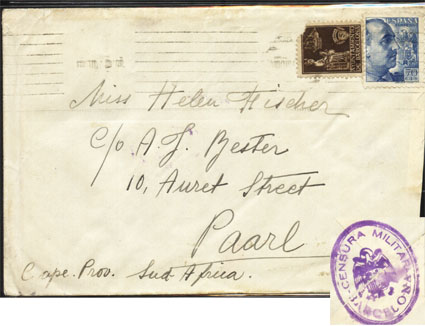 ESPAÑA
Miss Helen Fischer
c/o A. J. Bester
10, Auret Street
Paarl
Cape. Prov. Sud-Africa.
CENSURA MILITAR
BARCELONA